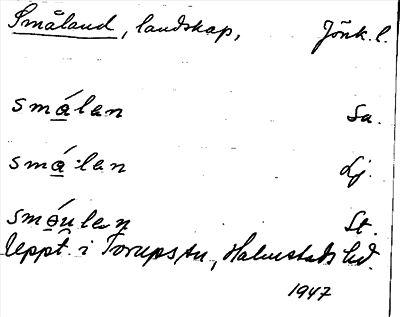 Småland, landskap, Jönk. l.
smá̱lan Sa.
smá̱·lan Lj.
smə́u̱lan St.
Uppt. i Torups sn, Halmstads hd.
1947